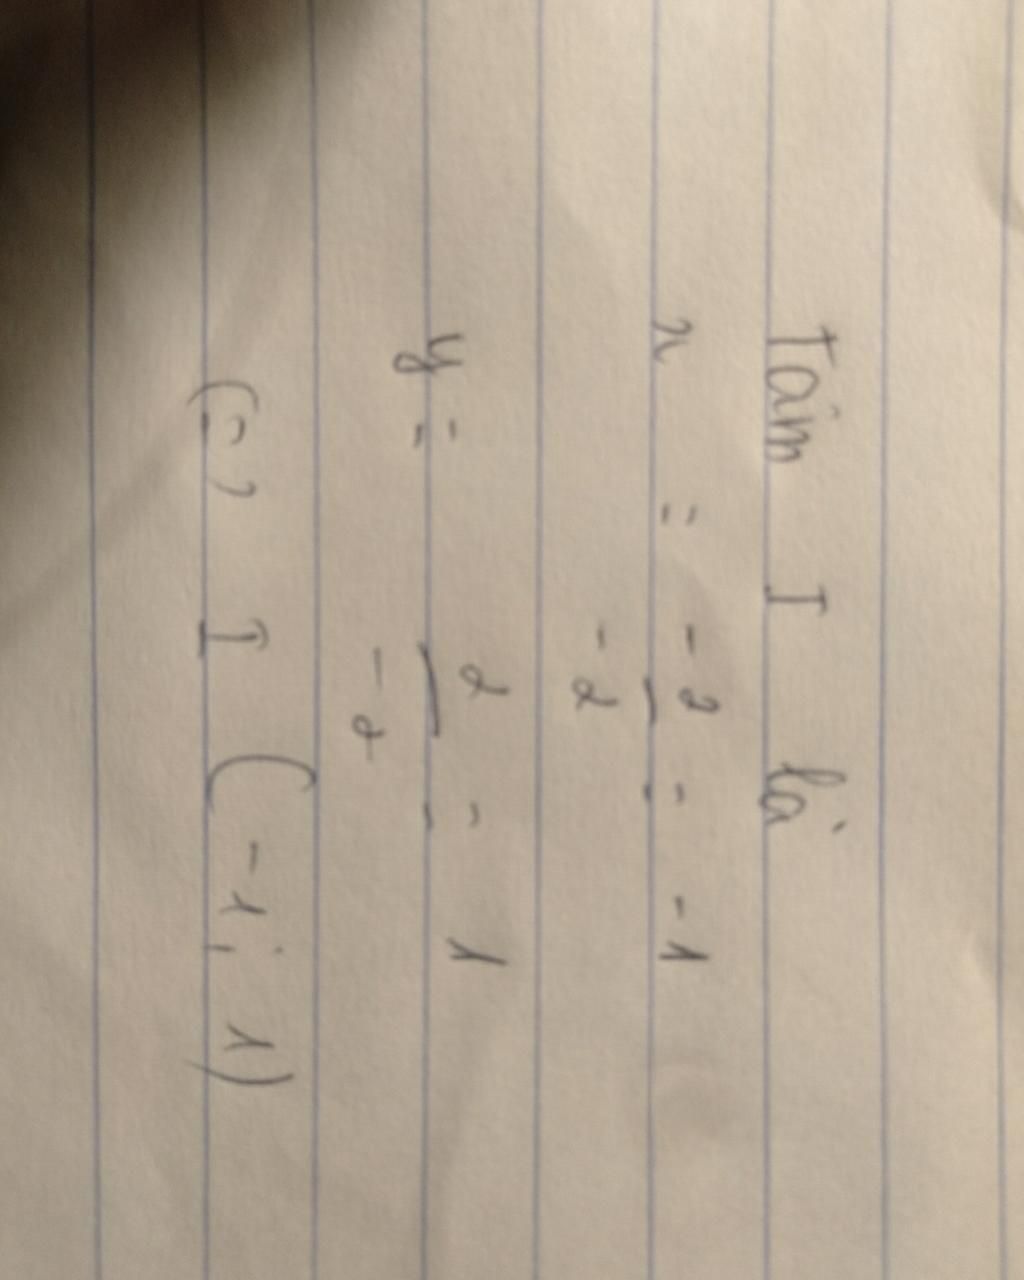 Tâm I là
x = -2/-2 = -1
y = 2/-2 = 1
(=) I (-1; 1)